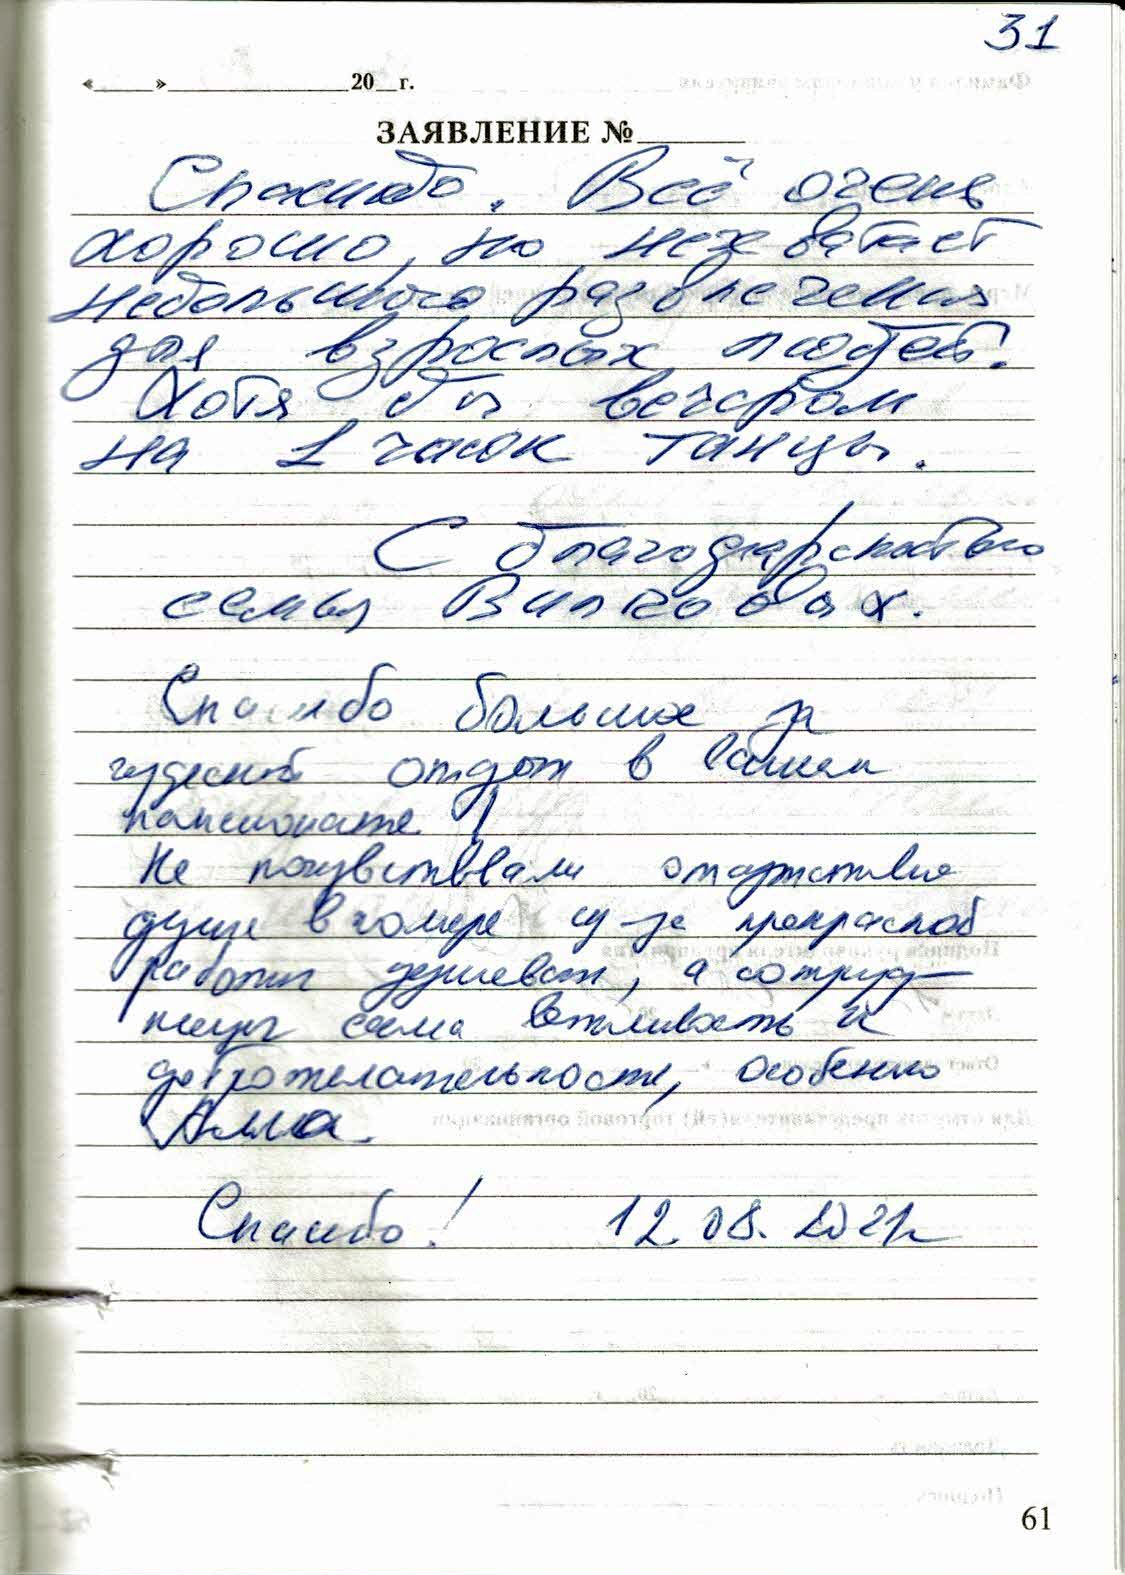 31
«____»____________20__г.
ЗАЯВЛЕНИЕ №______
Спасибо. Всё очень
хорошо, но не хватает
небольшого развлечения
для взрослых людей.
Хотя бы вечером
на 1 часок танцы.
С благодарностью
семья Вилковых.
Спасибо большое за
чудесный отдых в Вашем
пансионате!
Не почувствовали отсутствие
душа в номере из-за прекрасной
работы душевых, а сотруд-
ницы сама вежливость и
доброжелательность, особенно
Алла.
Спасибо! 12.08.2021г
61